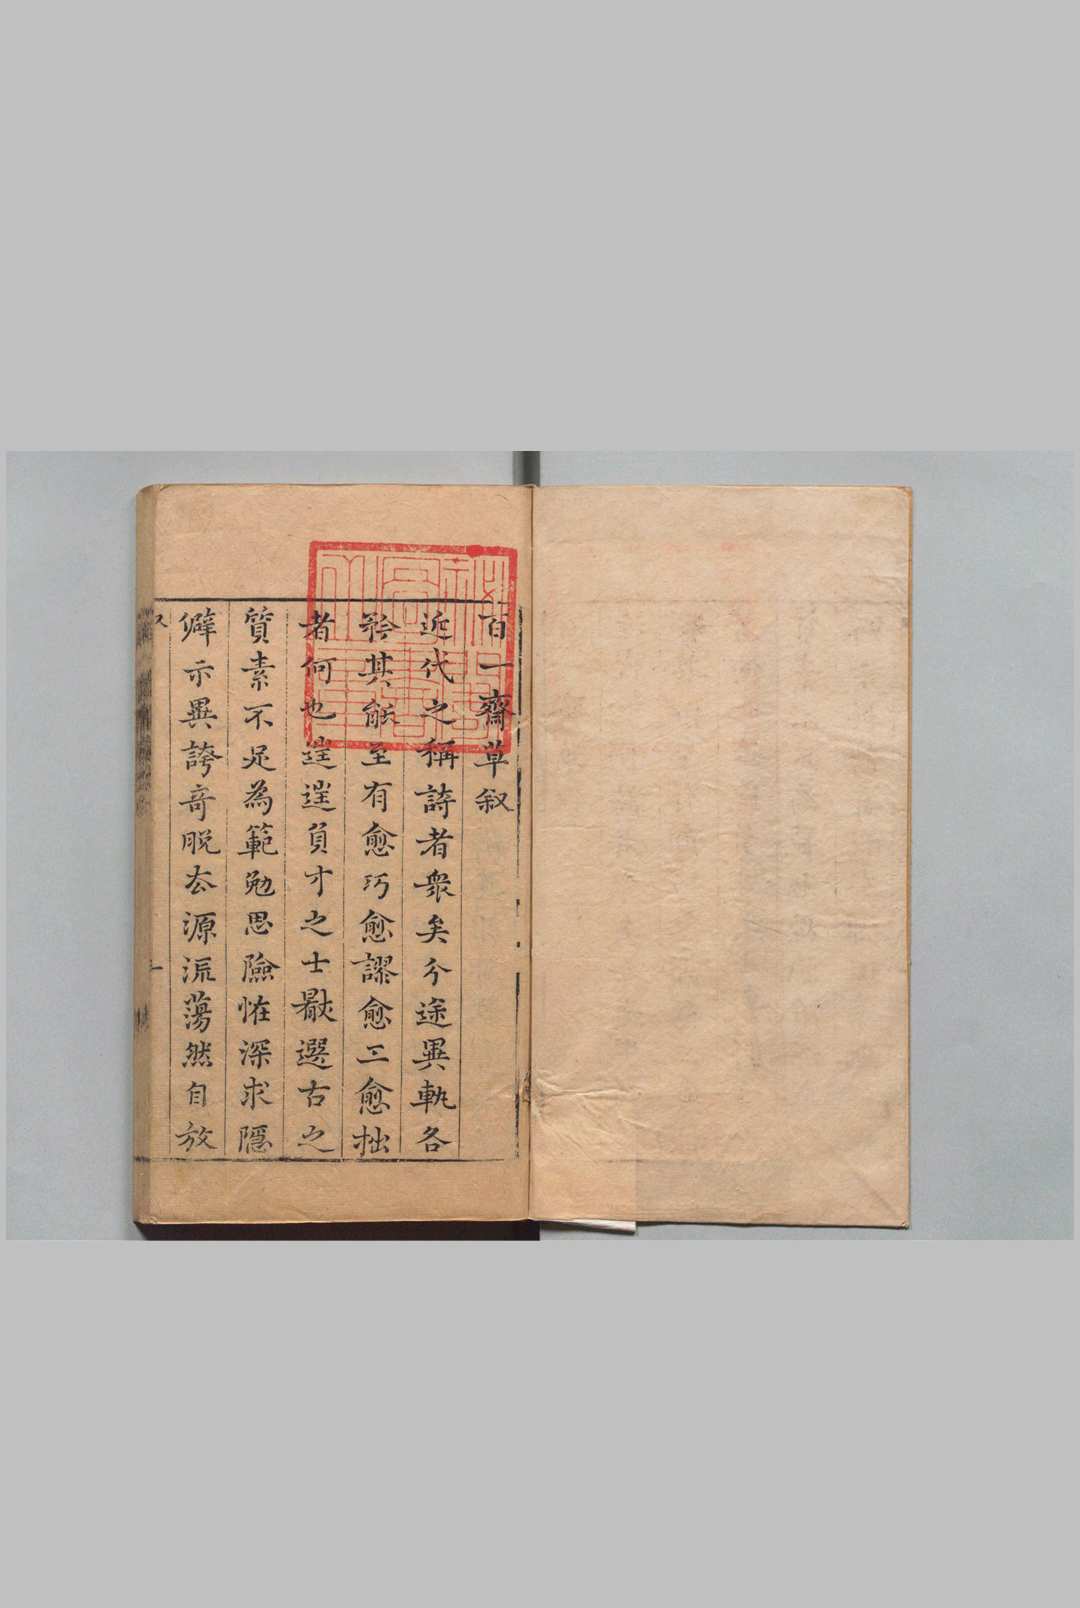 百一齋草叙
近代之稱詩者衆矣分途異軌各
矜其能至有愈巧愈謬愈工愈拙
者何也逞逞負才之士厭選古之
質素不足為範勉思險恠深求隱
僻示異誇竒脱去源流蕩然自放